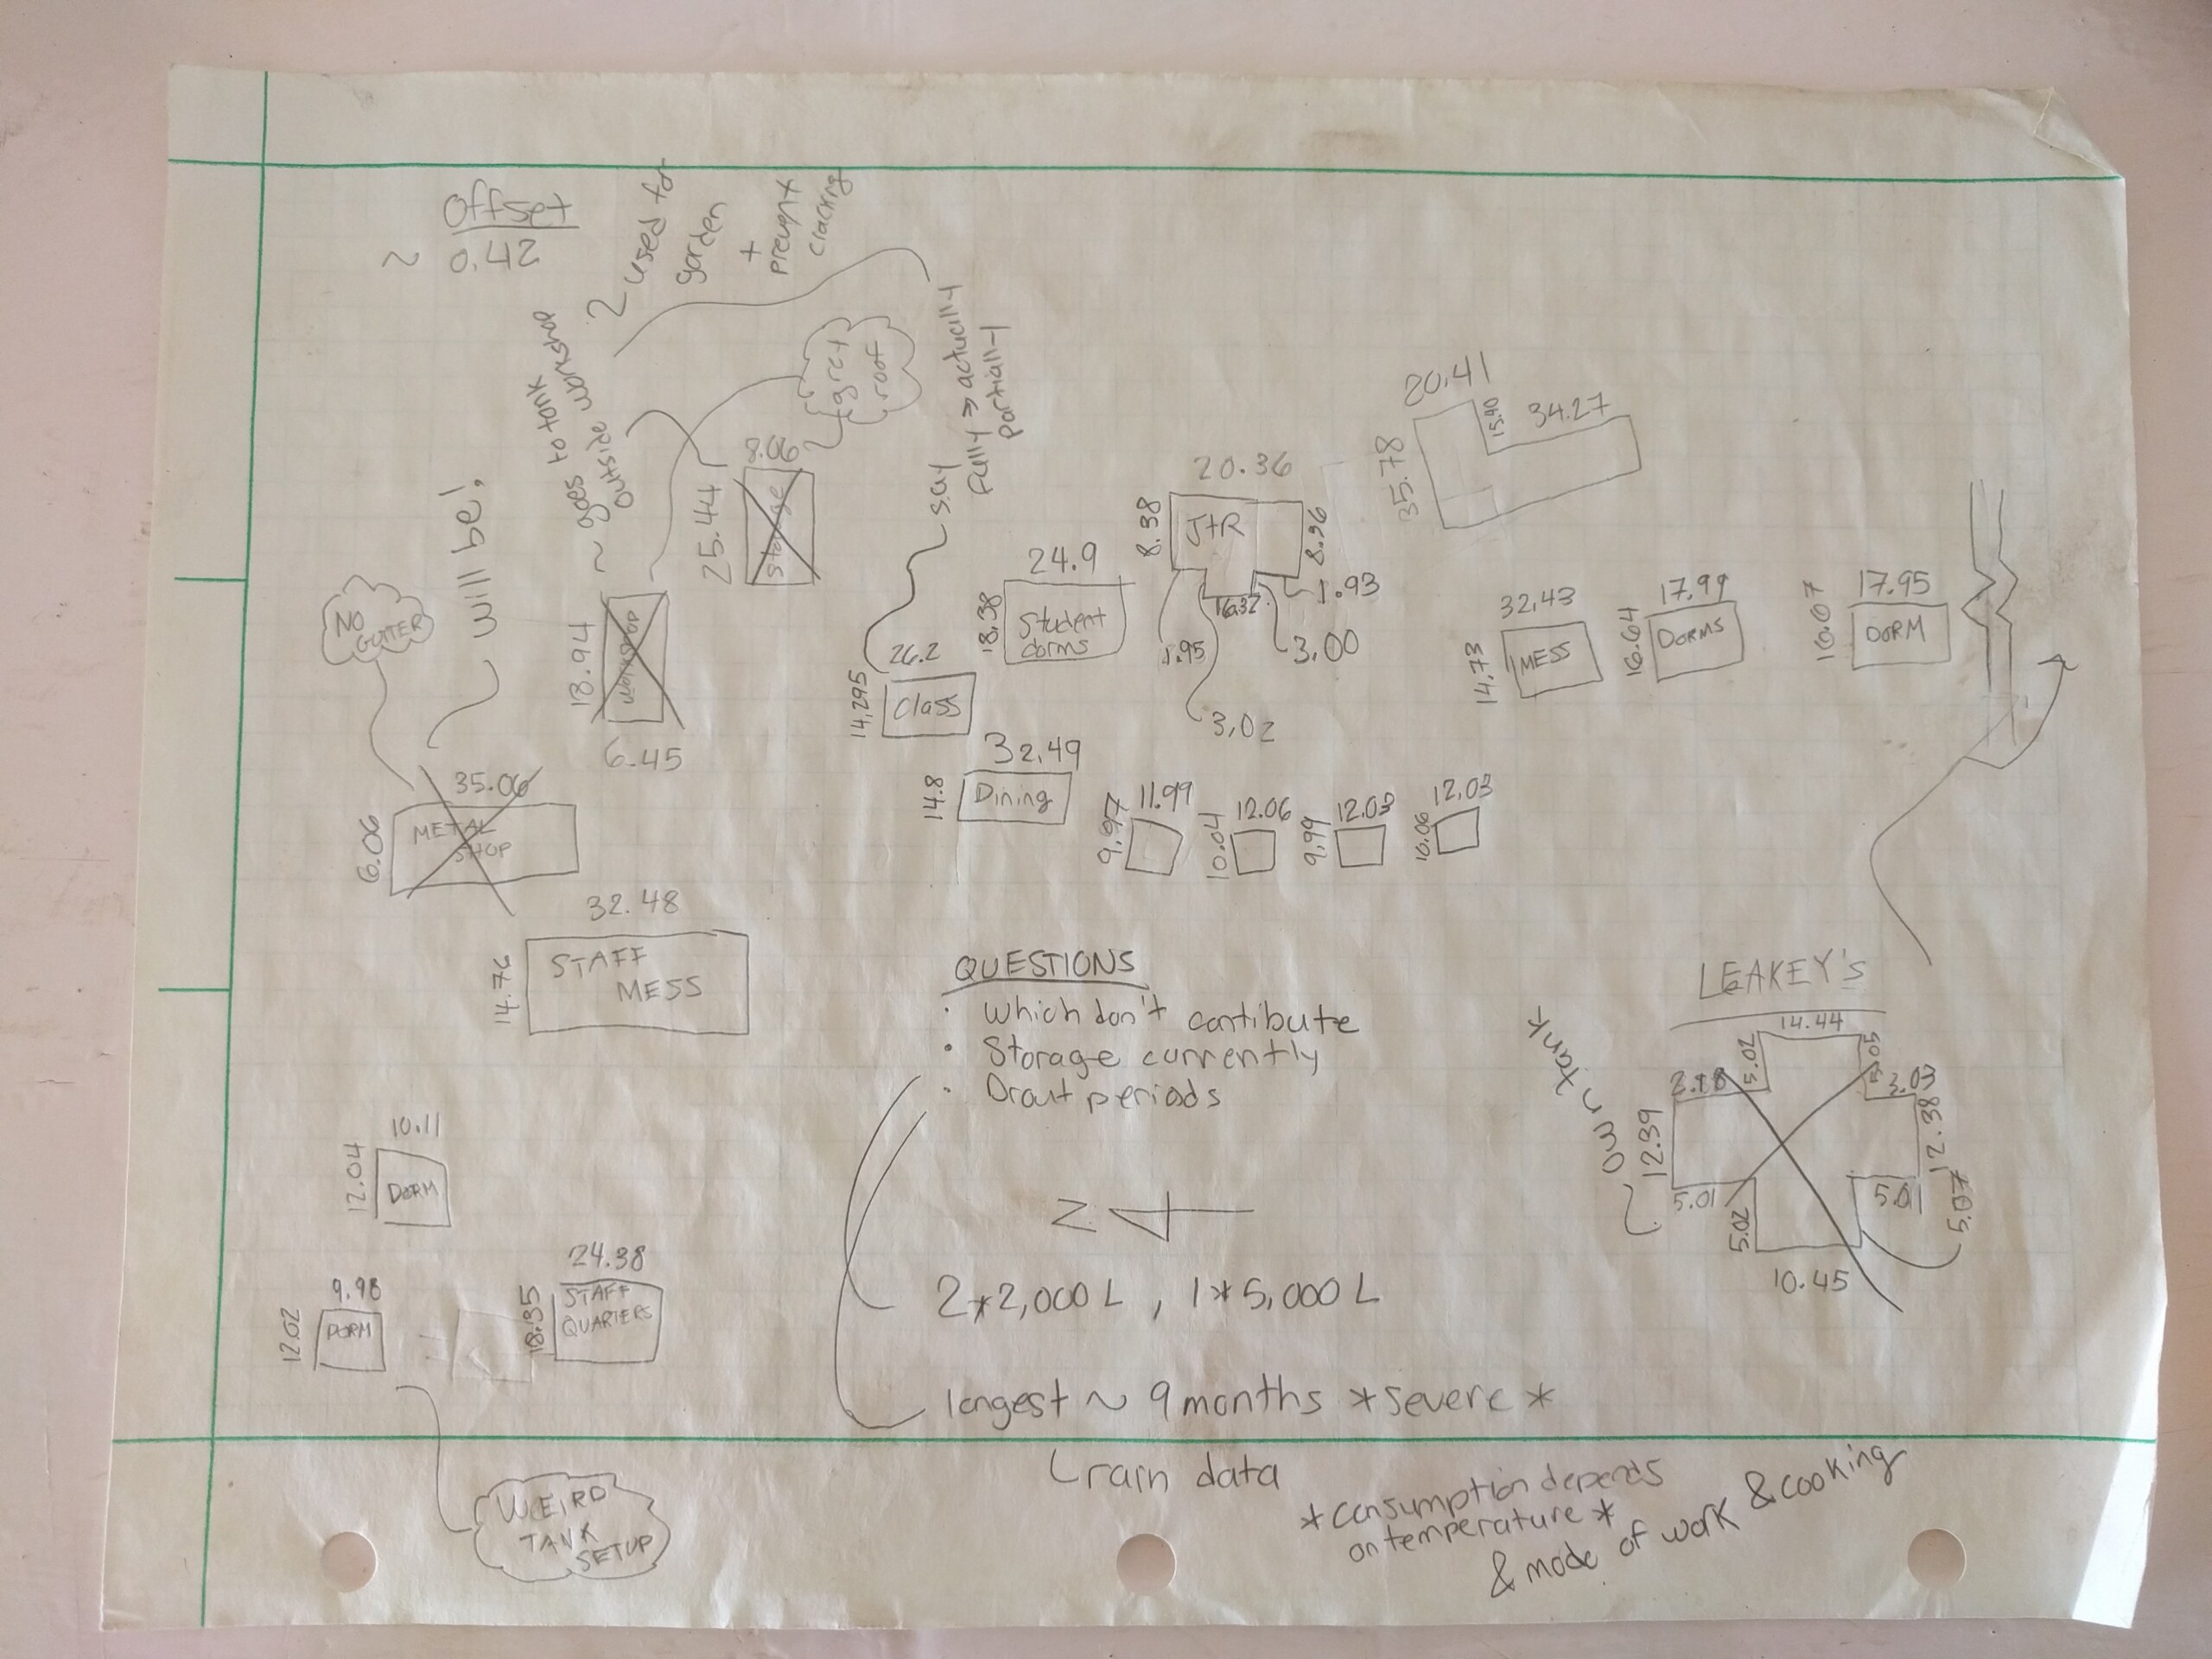 Offset
~ 0.42
2 used for
garden
+
prevent
cracking
~ goes to tank
outside workshop
great
roof
say
fully => actually
partially
will be!
NO
GUTTER
18.94
workshop
6.45
25.44
8.06
storage
35.06
6.06
METAL
SHOP
32.48
14.76
STAFF
MESS
26.2
14.295
Class
24.9
18.38
Student
dorms
32.49
14.8
Dining
20.36
8.38
J+R
8.96
1.93
16.32
1.95
3.00
3.02
20.41
15.40
34.27
35.78
32.43
14.73
MESS
17.99
16.64
DORMS
17.95
16.07
DORM
11.99
9.97
12.06
10.04
12.03
9.99
12.03
10.06
QUESTIONS
· Which don't contibute
· Storage currently
· Drout periods
N
2*2,000 L , 1*5,000 L
longest ~ 9 months *severe*
rain data
*consumption depends
on temperature*
& mode of work & cooking
LEAKEY's
own tank
14.44
5.02
5.05
3.03
12.39
12.38
5.01
5.02
5.01
5.07
10.45
10.11
12.04
DORM
9.98
12.02
DORM
24.38
18.35
STAFF
QUARTERS
WEIRD
TANK
SETUP